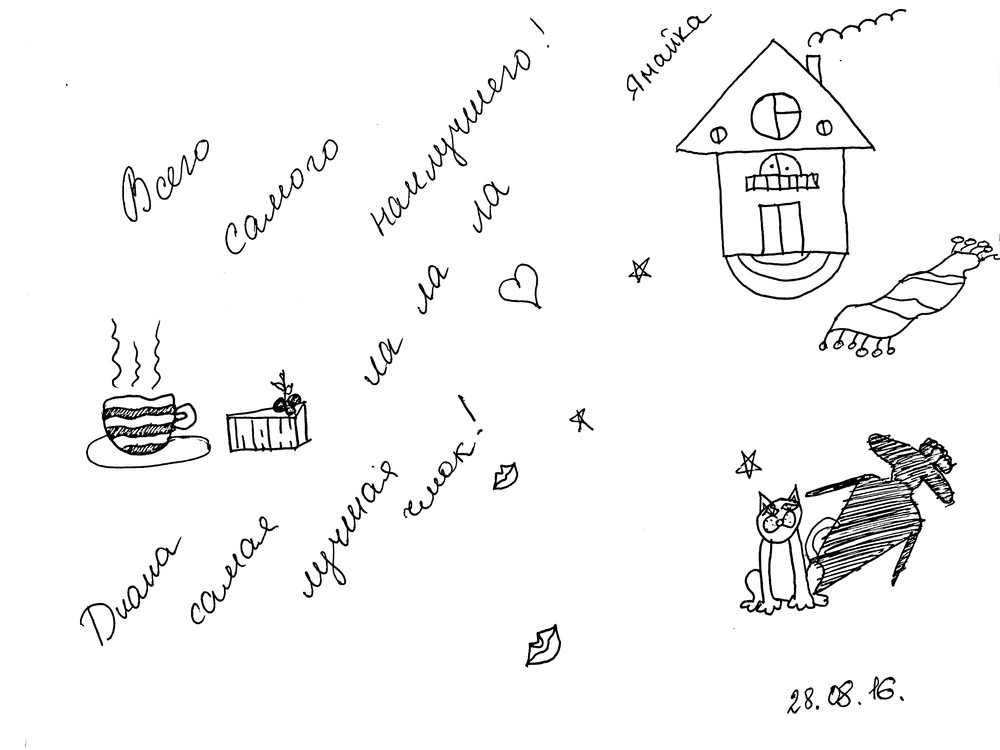 Всего самого наилучшего!
ла ла ла
Диана самая лучшая
чмок!
Ямайка
28.08.16.